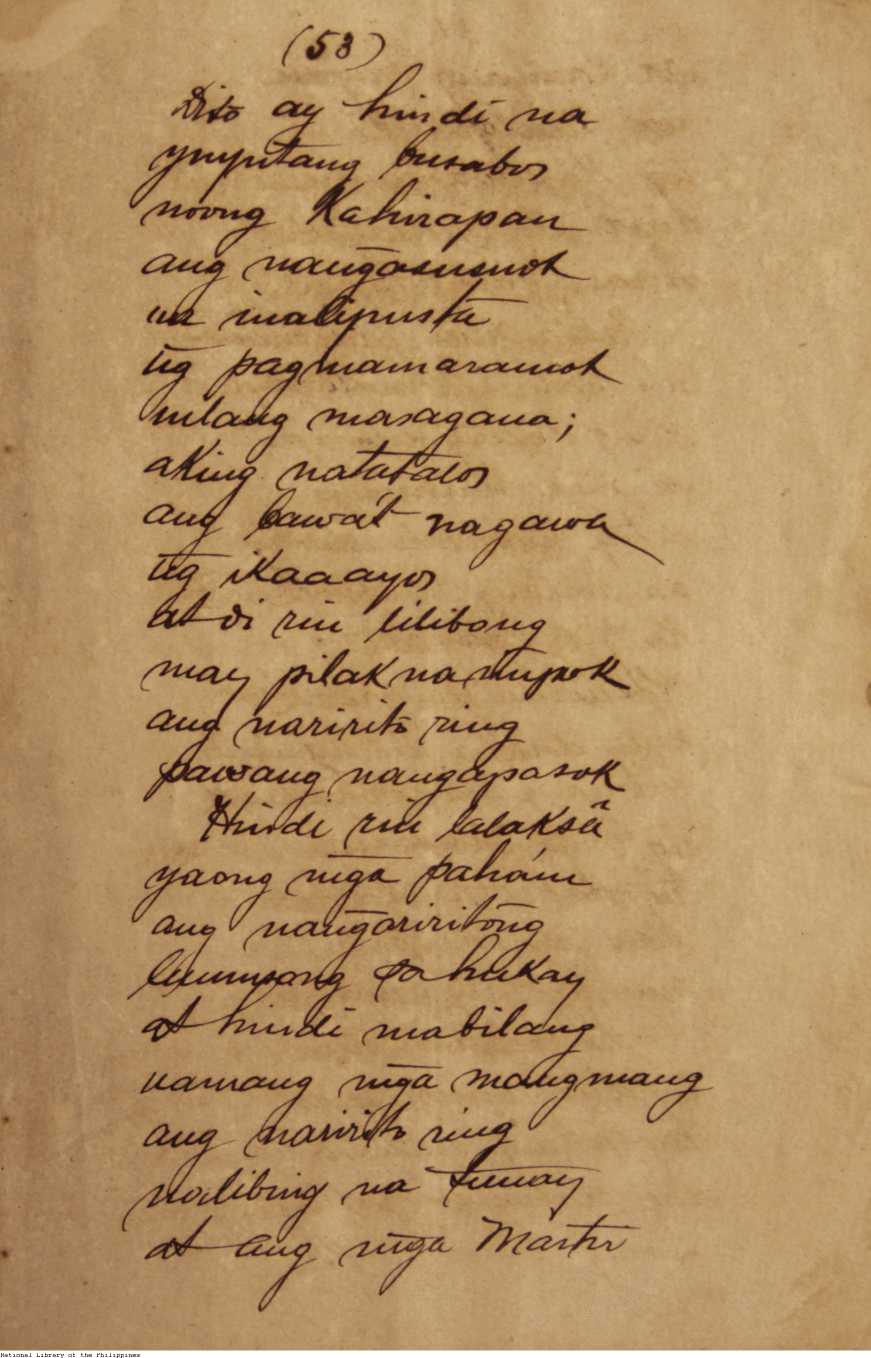 (53)
Dito ay hindi na
ynyutang busabos
noong Kahirapan
ang nangasusuot
na inalipusta
ñg pagmamaramot
nilang masagana;
aking natatalos
ang bawa't nagawa
ñg ikaaayos
at di rin lilibong
may pilak na inipok
ang naririto ring
pawang nangapasok
Hindi rin lalaksâ
yaong mg̃a pahám
ang nang̃ariritóng
lumusong sa hukay
at hindi mabilang
namang mg̃a mangmang
ang naririto ring
nalibing na tunay
at ang mg̃a Martir
National Library of the Philippines